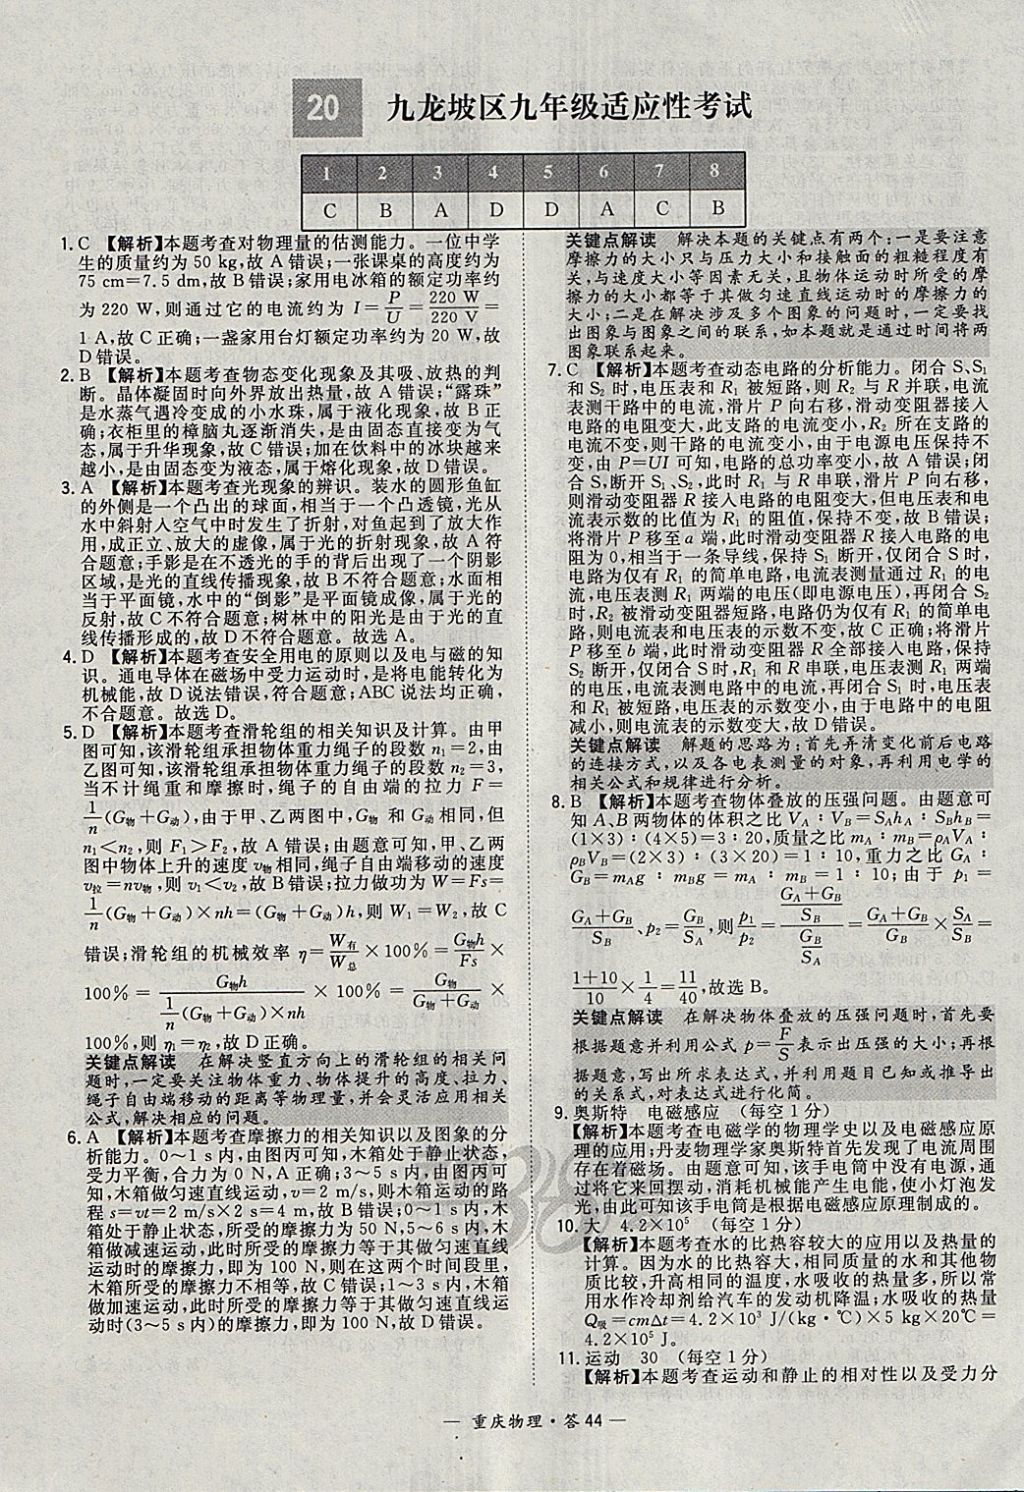 20 九龙坡区九年级适应性考试
1 2 3 4 5 6 7 8
C B A D D A C B
1. C 【解析】本题考查对物理量的估测能力。一位中学
生的质量约为 50 kg,故 A 错误;一张课桌的高度约为
75 cm=7.5 dm,故 B 错误;家用电冰箱的额定功率约
为 220 W,则通过它的电流约为 I=P/U=220 W/220 V=
1 A,故 C 正确;一盏家用台灯额定功率约为 20 W,故
D 错误。
2. B 【解析】本题考查物态变化现象及其吸、放热的判
断。晶体凝固时向外界放出热量,故 A 错误;“露珠”
是水蒸气遇冷变成的小水珠,属于液化现象,故 B 正
确;衣柜里的樟脑丸逐渐消失,是由固态直接变为气
态,属于升华现象,故 C 错误;加在饮料中的冰块越来
越小,是由固态变为液态,属于熔化现象,故 D 错误。
3. A 【解析】本题考查光现象的辨识。装水的圆形鱼缸
的外侧是一个凸出的球面,相当于一个凸透镜,光从
水中斜射入空气中时发生了折射,对鱼起到了放大作
用,成正立、放大的虚像,属于光的折射现象,故 A 符
合题意;手影是在不透光的手的背后出现了一个阴影
区域,是光的直线传播现象,故 B 不符合题意;水面相
当于平面镜,水中的“倒影”是平面镜成像,属于光的
反射,故 C 不符合题意;树林中的阳光是由于光的直
线传播形成的,故 D 不符合题意。故选 A。
4. D 【解析】本题考查安全用电的原则以及电与磁的知
识。通电导体在磁场中受力运动时,是将电能转化为
机械能,故 D 说法错误,符合题意;ABC 说法均正确,
不合题意。故选 D。
5. D 【解析】本题考查滑轮组的相关知识及计算。由甲
图可知,该滑轮组承担物体重力绳子的段数 n₁=2,由
乙图可知,该滑轮组承担物体重力绳子的段数 n₂=3,
当不计绳重和摩擦时,绳子的自由端的拉力 F=
1/n(G物+G动),由于甲、乙两图中,G物 和 G动相同,但
n₁<n₂,则 F₁>F₂,故 A 错误;由题意可知,甲、乙两
图中物体上升的速度 v物相同,绳子自由端移动的速度
v拉=nv物,则 v₁<v₂,故 B 错误;拉力做功为 W=Fs=
1/n(G物+G动)×nh=(G物+G动)h,则 W₁=W₂,故 C
错误;滑轮组的机械效率 η=W有/W总×100%=G物h/Fs×
100%=G物h/(1/n(G物+G动)×nh)×100%=G物/(G物+G动)×
100%,则 η₁=η₂,故 D 正确。
关键点解读 在解决竖直方向上的滑轮组的相关问
题时,一定要关注物体重力、物体提升的高度、拉力、
绳子自由端移动的距离等物理量,并会灵活应用相关
公式,解决相应的问题。
6. A 【解析】本题考查摩擦力的相关知识以及图象的分
析能力。0～1 s 内,由图丙可知,木箱处于静止状态,
受力平衡,合力为 0 N,A 正确;3～5 s 内,由图丙可
知,木箱做匀速直线运动,v=2 m/s,则木箱运动的路
程 s=vt=2 m/s×2 s=4 m,故 B 错误;0～1 s 内,木
箱处于静止状态,所受的摩擦力为 50 N,5～6 s 内,木
箱做减速运动,此时所受的摩擦力等于其做匀速直线
运动时的摩擦力,即为 100 N,则在这两个时间段里,
木箱所受的摩擦力不相等,故 C 错误;1～3 s 内,木箱
做加速运动,此时所受的摩擦力等于其做匀速直线运
动时(3～5 s 内)的摩擦力,即为 100 N,故 D 错误。
关键点解读 解决本题的关键点有两个:一是要注意
摩擦力的大小只与压力大小和接触面的粗糙程度有
关,与速度大小等因素无关,且物体运动时所受的摩
擦力的大小都等于其做匀速直线运动时的摩擦力的
大小;二是在解决涉及多个图象的问题时,一定要找
出图象与图象之间的联系,如本题就是通过时间将两
图象联系起来。
7. C 【解析】本题考查动态电路的分析能力。闭合 S、S₁
和 S₂ 时,电压表和 R₁ 被短路,则 R₂ 与 R 并联,电流
表测干路中的电流,滑片 P 向右移,滑动变阻器接入
电路的电阻变大,此支路的电流变小,R₂ 所在支路的
电流不变,则干路的电流变小,由于电源电压保持不
变,由 P=UI 可知,电路的总功率变小,故 A 错误;闭
合 S,断开 S₁、S₂,此时 R₁ 与 R 串联,滑片 P 向右移,
则滑动变阻器 R 接入电路的电阻变大,但电压表和电
流表示数的比值为 R₁ 的阻值,保持不变,故 B 错误;
将滑片 P 移至 a 端,此时滑动变阻器 R 接入电路的电
阻为 0,相当于一条导线,保持 S₁ 断开,仅闭合 S 时,
电路为仅有 R₁ 的简单电路,电流表测量通过 R₁ 的电
流,电压表测 R₁ 两端的电压(即电源电压),再闭合 S₂
时,R₂ 被滑动变阻器短路,电路仍为仅有 R₁ 的简单电
路,则电流表和电压表的示数不变,故 C 正确;将滑片
P 移至 b 端,此时滑动变阻器 R 全部接入电路,保持
S₂ 断开,仅闭合 S 时,R₁ 和 R 串联,电压表测 R₁ 两端
的电压,电流表测电路中的电流,再闭合 S₁ 时,电压表
和 R₁ 被短路,电压表的示数变小,由于电路中的电阻
减小,则电流表的示数变大,故 D 错误。
关键点解读 解题的思路为:首先弄清变化前后电路
的连接方式,以及各电表测量的对象,再利用电学的
相关公式和规律进行分析。
8. B 【解析】本题考查物体叠放的压强问题。由题意可
知 A、B 两物体的体积之比 V_A∶V_B=S_Ah_A∶S_Bh_B=
(1×3)∶(4×5)=3∶20,质量之比 m_A∶m_B=ρ_AV_A∶
ρ_BV_B=(2×3)∶(3×20)=1∶10,重力之比 G_A∶
G_B=m_Ag∶m_Bg=m_A∶m_B=1∶10;由于 p₁=
(G_A+G_B)/S_B、p₂=G_B/S_A,则 p₁/p₂=((G_A+G_B)/S_B)/(G_B/S_A)=(G_A+G_B)/G_B×S_A/S_B=
(1+10)/10×1/4=11/40,故选 B。
关键点解读 在解决物体叠放的压强问题时,首先要
根据题意并利用公式 p=F/S表示出压强的大小;再根
据题意,写出所求表达式,并利用题目已知或推导出
的关系式,对表达式进行化简。
9. 奥斯特 电磁感应 (每空 1 分)
【解析】本题考查电磁学的物理学史以及电磁感应原
理的应用;丹麦物理学家奥斯特首先发现了电流周围
存在着磁场。由题意可知,该手电筒中没有电源,通
过将它来回摆动,消耗机械能产生电能,使小灯泡发
光,由此可知该手电筒是根据电磁感应原理制成的。
10. 大 4.2×10⁵ (每空 1 分)
【解析】本题考查水的比热容较大的应用以及热量的
计算。因为水的比热容大,相同质量的水和其他物
质比较,升高相同的温度,水吸收的热量多,所以常
用水作冷却剂给汽车的发动机降温;水吸收的热量
Q吸=cmΔt=4.2×10³ J/(kg·℃)×5 kg×20℃=
4.2×10⁵ J。
11. 运动 30 (每空 1 分)
【解析】本题考查运动和静止的相对性以及受力分
— 重庆物理·答 44 —